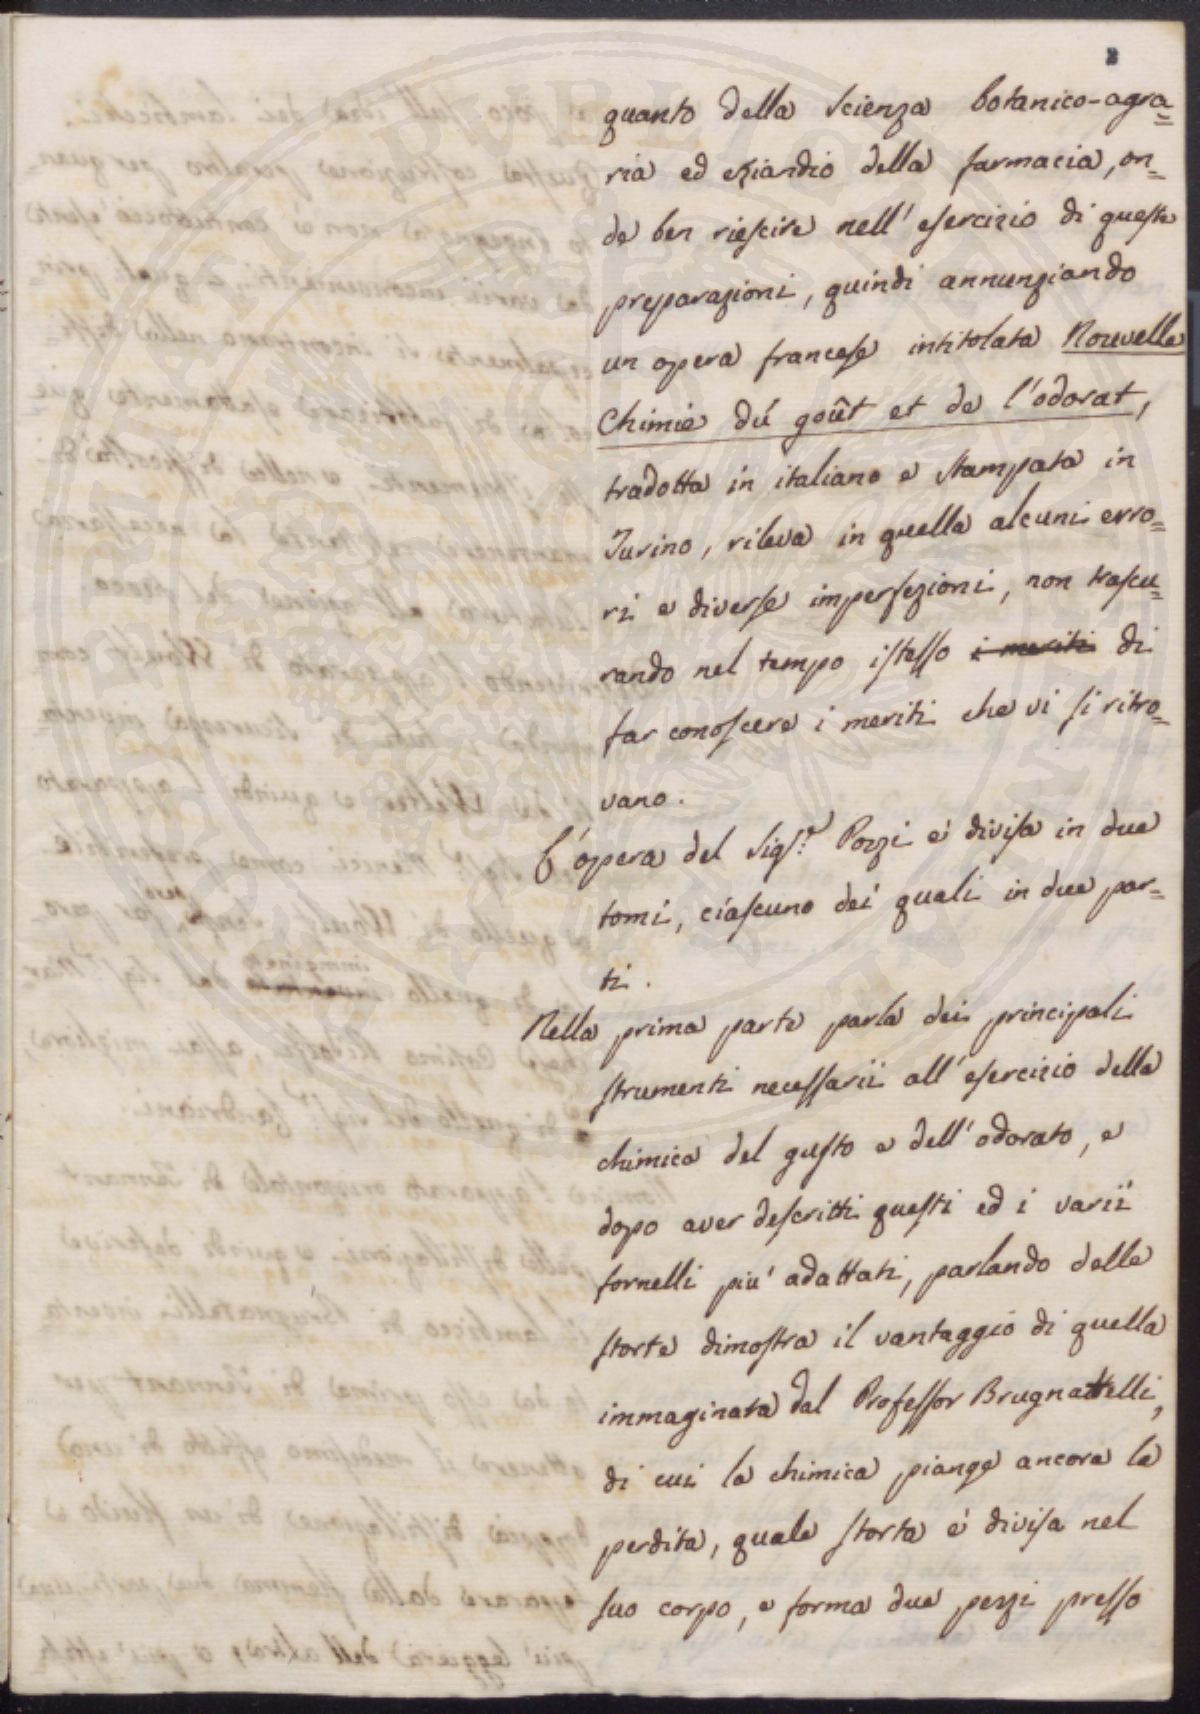 2
quanto della scienza botanico-agra=
ria ed eziandio della farmacia, on=
de ben riescire nell' esercizio di queste
preparazioni, quindi annunziando
un opera francese intitolata Nouvelle
Chimie dú goût et de l'odorat,
tradotta in italiano e stampata in
Turino, rileva in quella alcuni erro=
ri e diverse imperfezioni, non trascu=
rando nel tempo istesso i meriti di
far conoscere i meriti che vi si ritro=
vano.
L'opera del Sig.r Pozzi è divisa in due
tomi, ciascuno dei quali in due par=
ti.
Nella prima parte parla dei principali
strumenti necessarii all' esercizio della
chimica del gusto e dell' odorato, e
dopo aver descritti questi ed i varii
fornelli piu' adattati, parlando delle
storte dimostra il vantaggio di quella
immaginata dal Professor Brugnattelli,
di cui la chimica piange ancora la
perdita, quale storta è divisa nel
suo corpo, e forma due pezzi presso